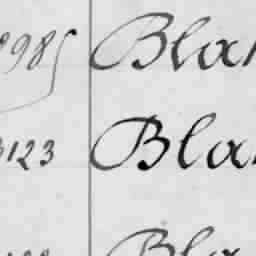 985 Blan
3123 Blan
Bla